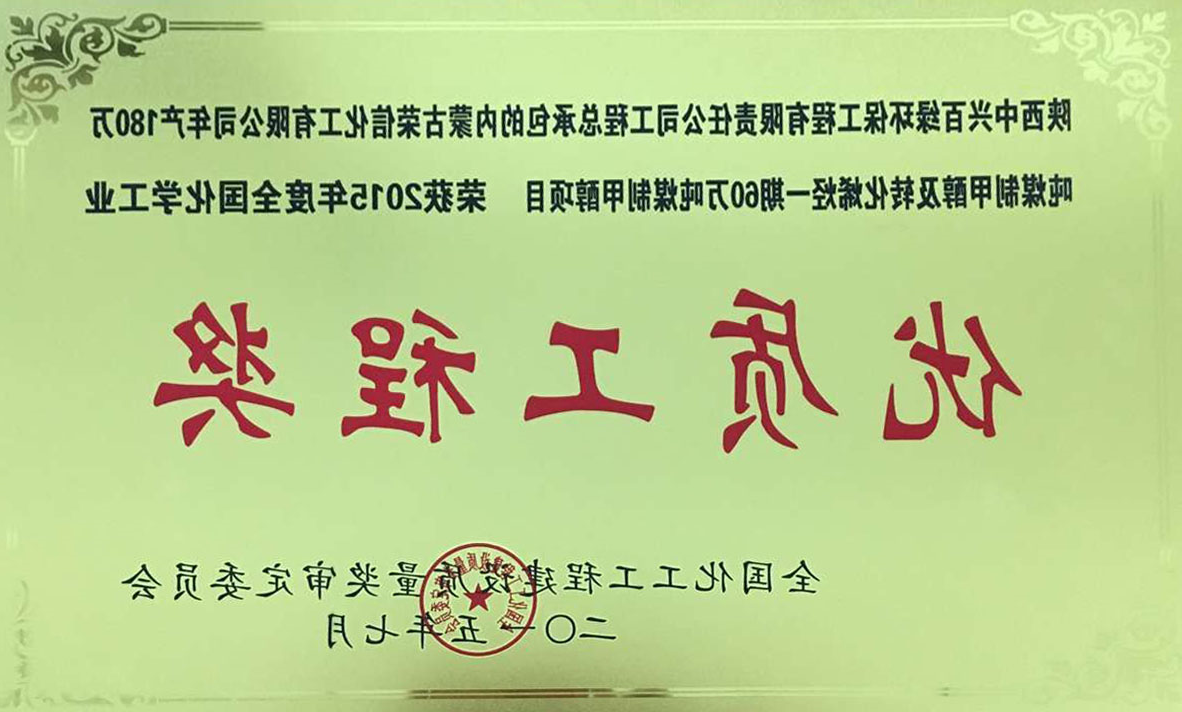 陕西中兴百绿环保工程有限责任公司工程总承包的内蒙古荣信化工有限公司年产180万
吨煤制甲醇及转化烯烃一期60万吨煤制甲醇项目 荣获2015年度全国化学工业
优质工程奖
全国化工工程建设质量奖审定委员会
二〇一五年七月